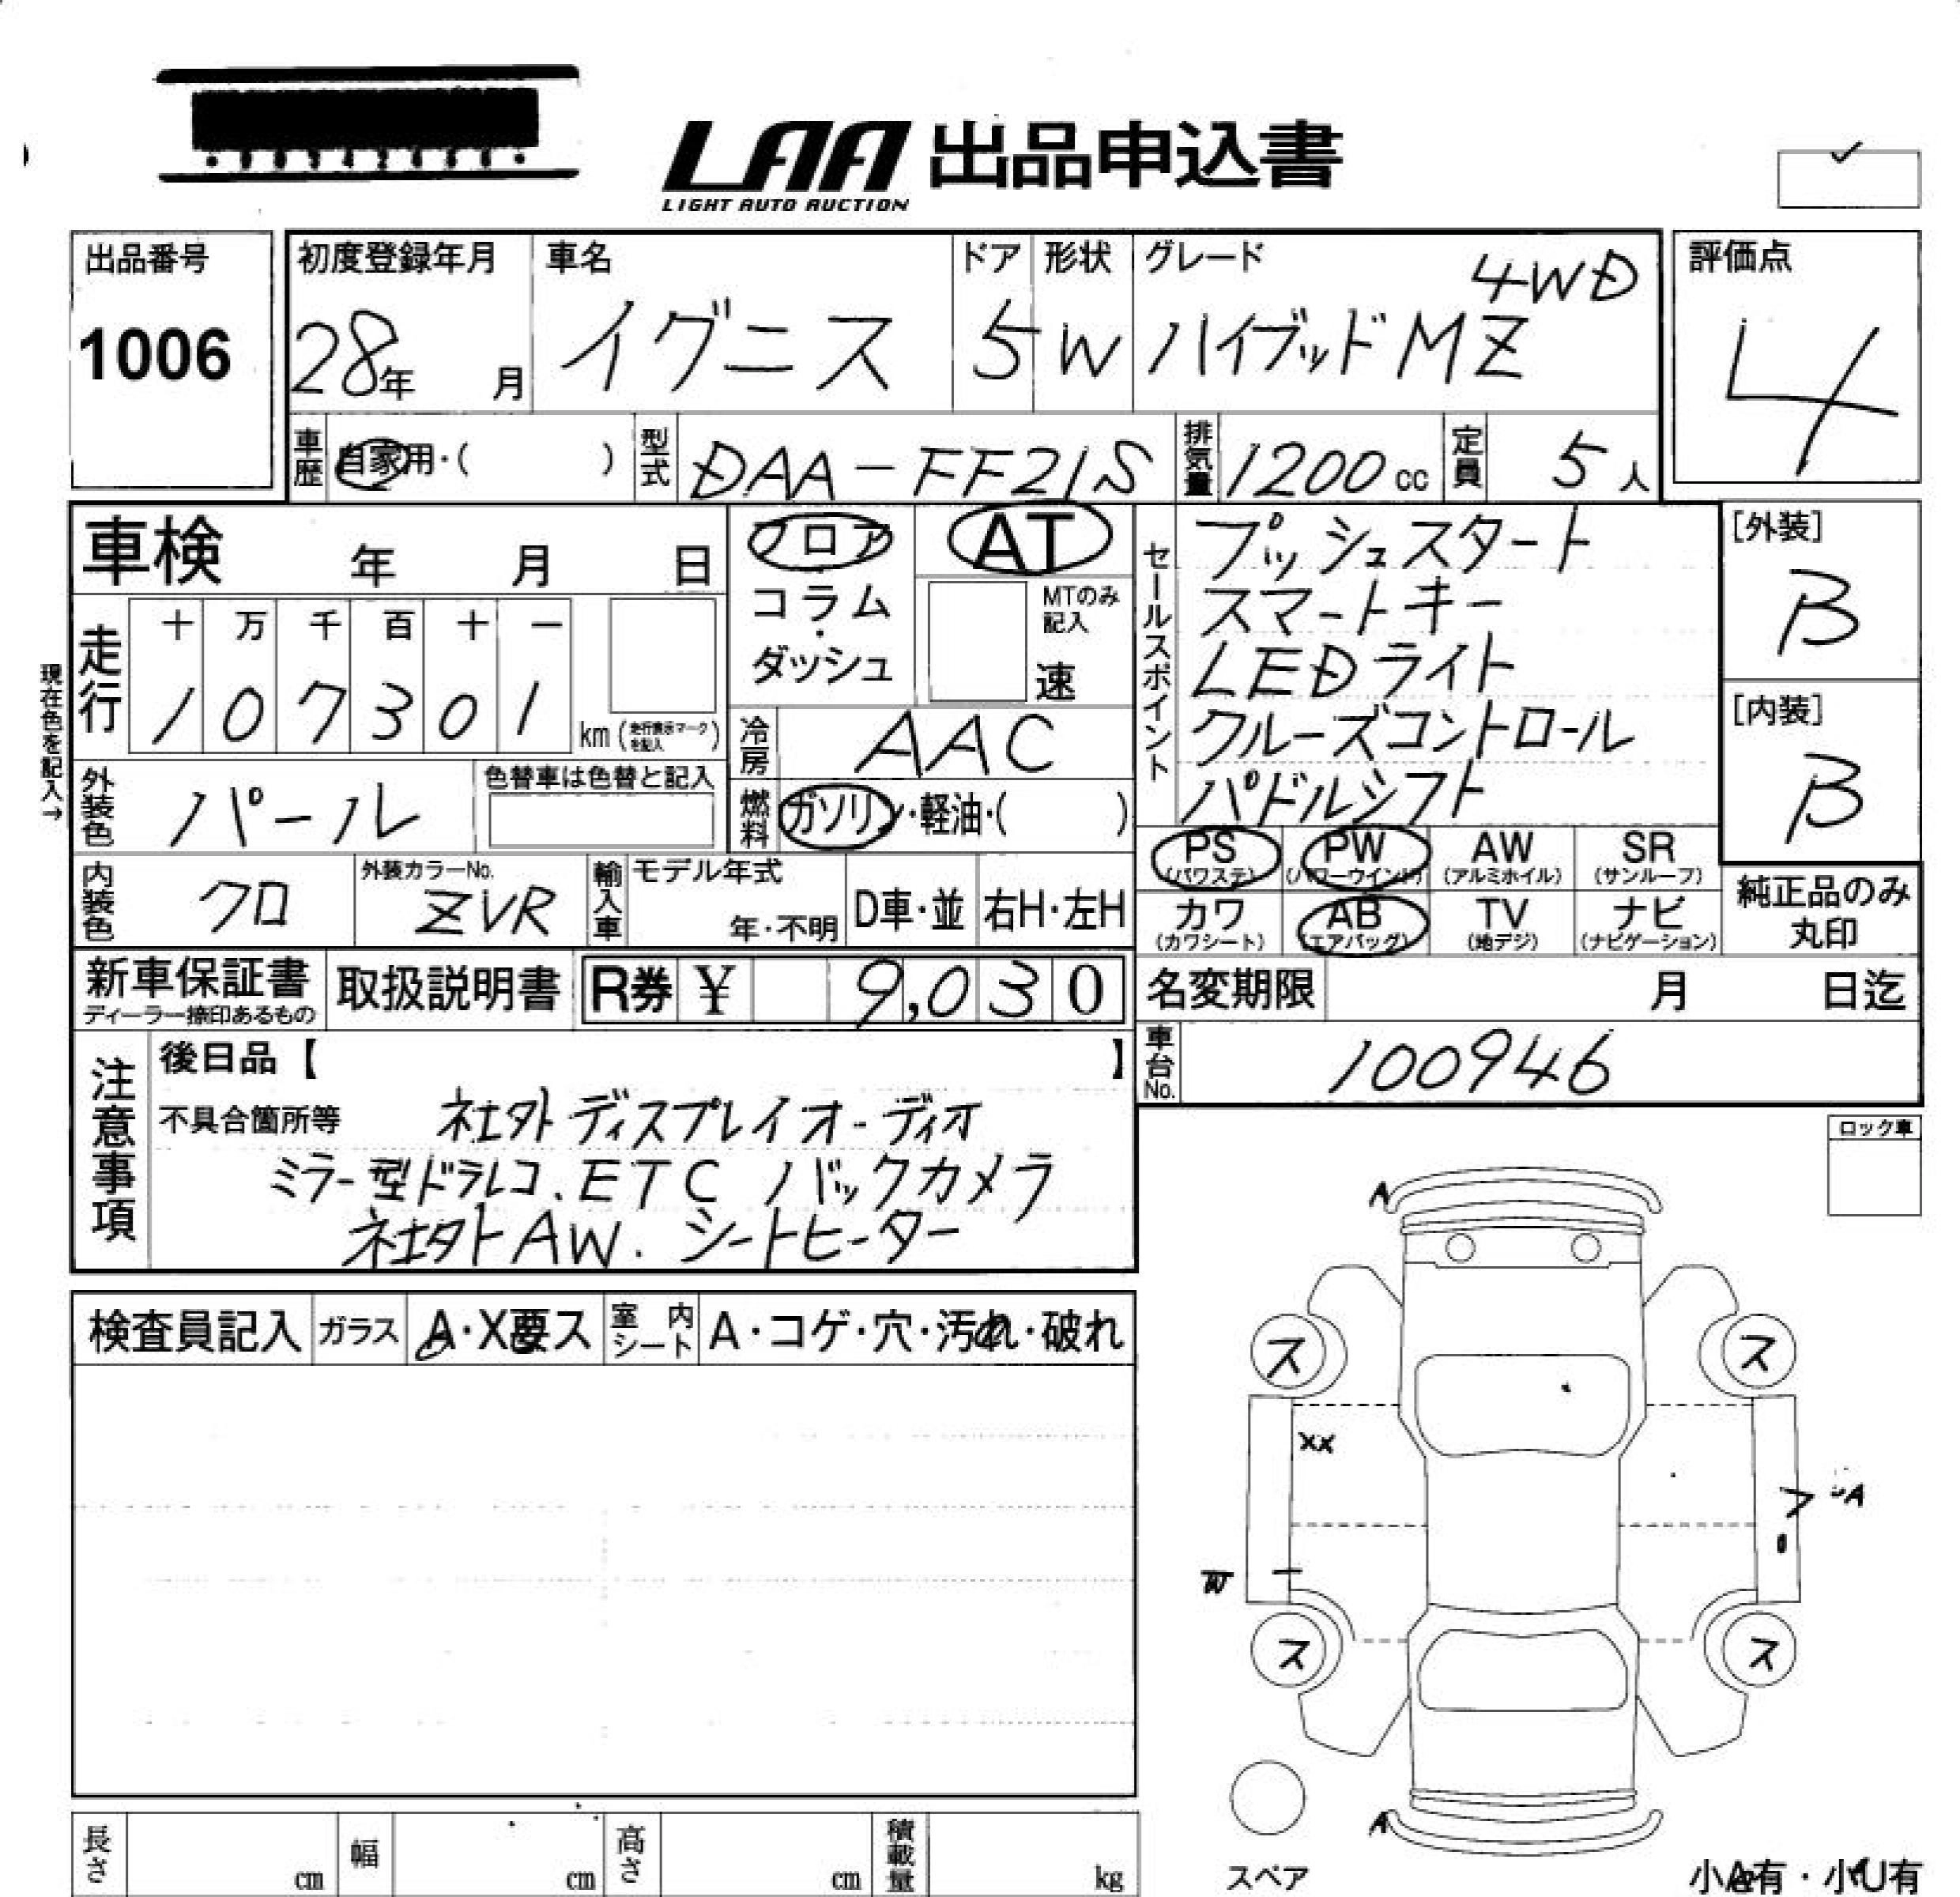 LAA 出品申込書
LIGHT AUTO AUCTION
出品番号
1006
初度登録年月
28年 月
車名
イグニス
ドア
5
形状
W
グレード
4WD
ハイブッドMZ
評価点
4
車歴
自家用・( )
型式
DAA-FF21S
排気量
1200cc
定員
5人
車検 年 月 日
フロア
・
コラム
・
ダッシュ
AT
MTのみ
記入
速
セールスポイント
プッシュスタート
スマートキー
LEDライト
クルーズコントロール
パドルシフト
[外装]
B
[内装]
B
現在色を記入→
走行
十 万 千 百 十 一
1 0 7 3 0 1 km (走行表示マークを記入)
冷房
AAC
外装色
パール
色替車は色替と記入
燃料
ガソリン・軽油・( )
PS
(パワステ)
PW
(パワーウインド)
AW
(アルミホイル)
SR
(サンルーフ)
カワ
(カワシート)
AB
(エアバッグ)
TV
(地デジ)
ナビ
(ナビゲーション)
純正品のみ
丸印
内装色
クロ
外装カラーNo.
ZVR
輸入車
モデル年式
年・不明
D車・並
右H・左H
新車保証書
ディーラー捺印あるもの
取扱説明書
R券 ¥ 9,030
名変期限 月 日迄
車台No.
100946
注意事項
後日品【 】
不具合箇所等 社外ディスプレイオーディオ
ミラー型ドラレコ、ETC バックカメラ
社外AW. シートヒーター
ロック車
検査員記入
ガラス
A・X要ス
室内シート
A・コゲ・穴・汚れ・破れ
A
ス
ス
XX
A
W
ス
ス
A
スペア
小A有・小U有
長さ cm
幅 cm
高さ cm
積載量 kg